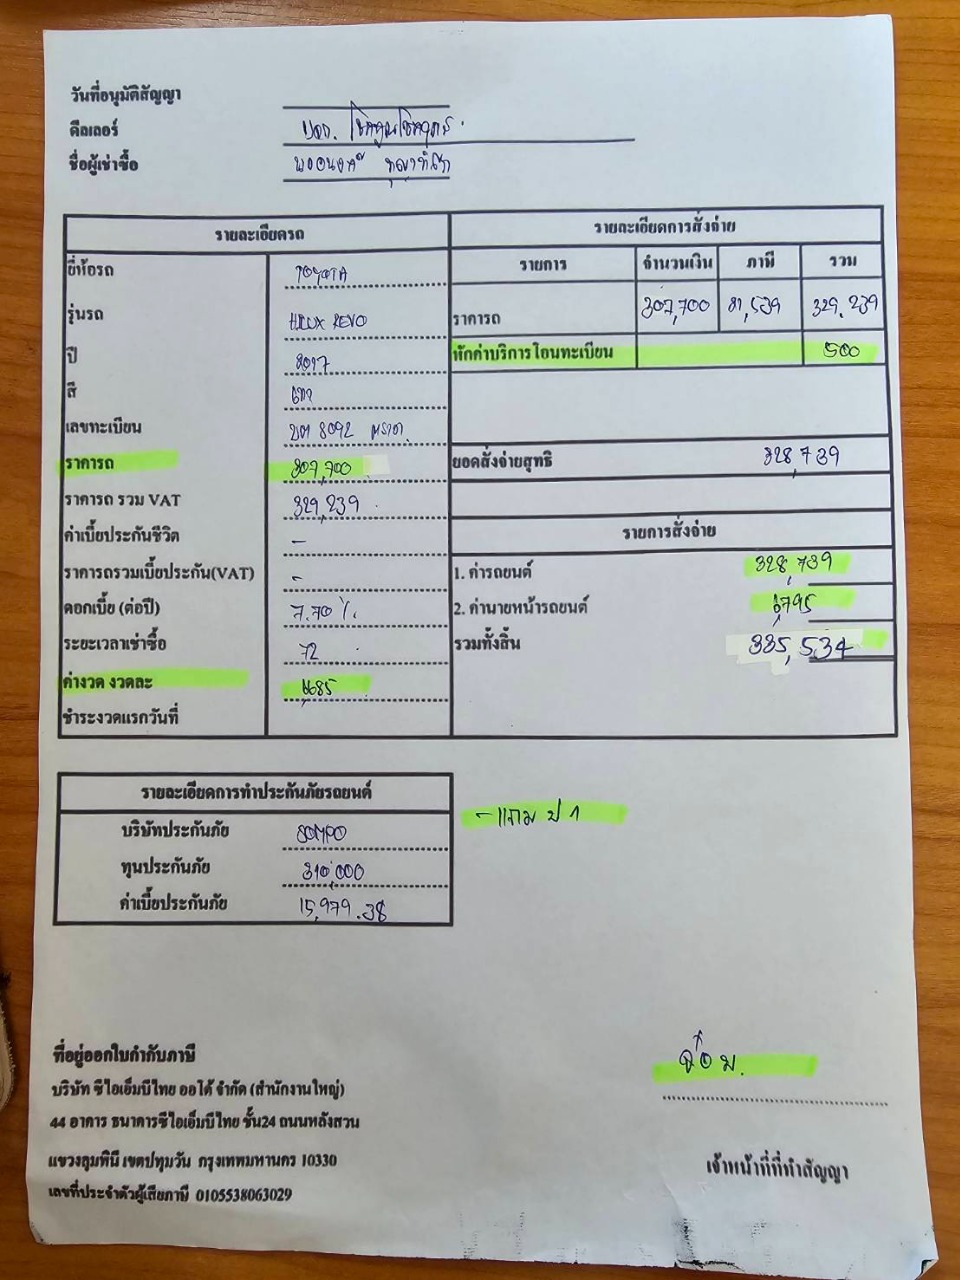 วันที่อนุมัติสัญญา
ดีลเลอร์ บจก.
ชื่อผู้เช่าซื้อ
รายละเอียดรถ
ยี่ห้อรถ TOYOTA
รุ่นรถ HILUX REVO
ปี 2017
สี เทา
เลขทะเบียน 8092
ราคารถ 307,700
ราคารถ รวม VAT 329,239
ค่าเบี้ยประกันชีวิต -
ราคารถรวมเบี้ยประกัน(VAT) -
ดอกเบี้ย (ต่อปี) 7.70 %
ระยะเวลาเช่าซื้อ 72
ค่างวด งวดละ 6,685
ชำระงวดแรกวันที่
รายละเอียดการสั่งจ่าย
รายการ จำนวนเงิน ภาษี รวม
ราคารถ 307,700 21,539 329,239
หักค่าบริการโอนทะเบียน 500
ยอดสั่งจ่ายสุทธิ 328,739
รายการสั่งจ่าย
1. ค่ารถยนต์ 328,739
2. ค่านายหน้ารถยนต์ 6,795
รวมทั้งสิ้น 335,534
รายละเอียดการทำประกันภัยรถยนต์
บริษัทประกันภัย SOMPO
ทุนประกันภัย 310,000
ค่าเบี้ยประกันภัย 15,979.38
- แถม ป 1
ที่อยู่ออกใบกำกับภาษี
บริษัท ซีไอเอ็มบีไทย ออโต้ จำกัด (สำนักงานใหญ่)
44 อาคาร ธนาคารซีไอเอ็มบีไทย ชั้น24 ถนนหลังสวน
แขวงลุมพินี เขตปทุมวัน กรุงเทพมหานคร 10330
เลขที่ประจำตัวผู้เสียภาษี 0105538063029
เจ้าหน้าที่ที่ทำสัญญา